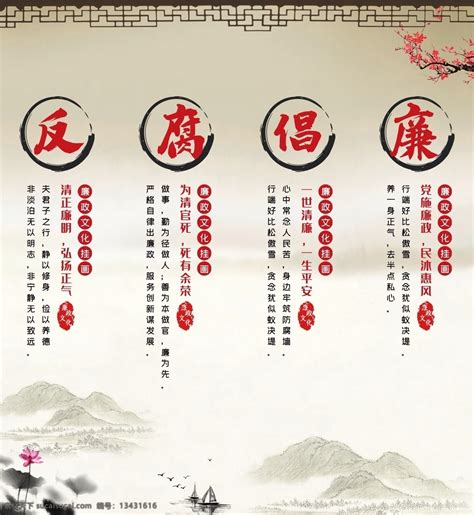 反
廉政文化挂画
清正廉明，弘扬正气
廉政文化
夫君子之行，静以修身，俭以养德
非淡泊无以明志，非宁静无以致远．
腐
廉政文化挂画
为清官死，死有余荣
廉政文化
做事，勤为径做人；善为本做官，廉为先．
严格自律出廉政，服务创新谋发展．
倡
廉政文化挂画
一世清廉，一生平安
廉政文化
心中常念人民苦，身边牢筑防腐墙．
行端好比松傲雪，贪念犹似蚁决堤．
廉
廉政文化挂画
党施廉政，民沐惠风
廉政文化
行端好比松傲雪，贪念犹似蚁决堤．
养一身正气，去半点私心．
13431616